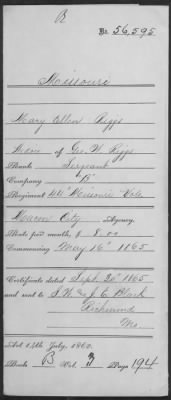 B
No. 56,595
Missouri
Mary Ellen Riggs
of Geo. W. Riggs
Rank Sergeant
Company "B"
Regiment 44" Missouri Vols
Macon City Agency.
Rate per month, $ 8.00
Commencing May 16" 1865
Certificate dated Sept. 26" 1865
and sent to S. W. & J. E. Black
Richmond
Mo.
Act 14th July, 1862.
Book B Vol. 3 Page 194